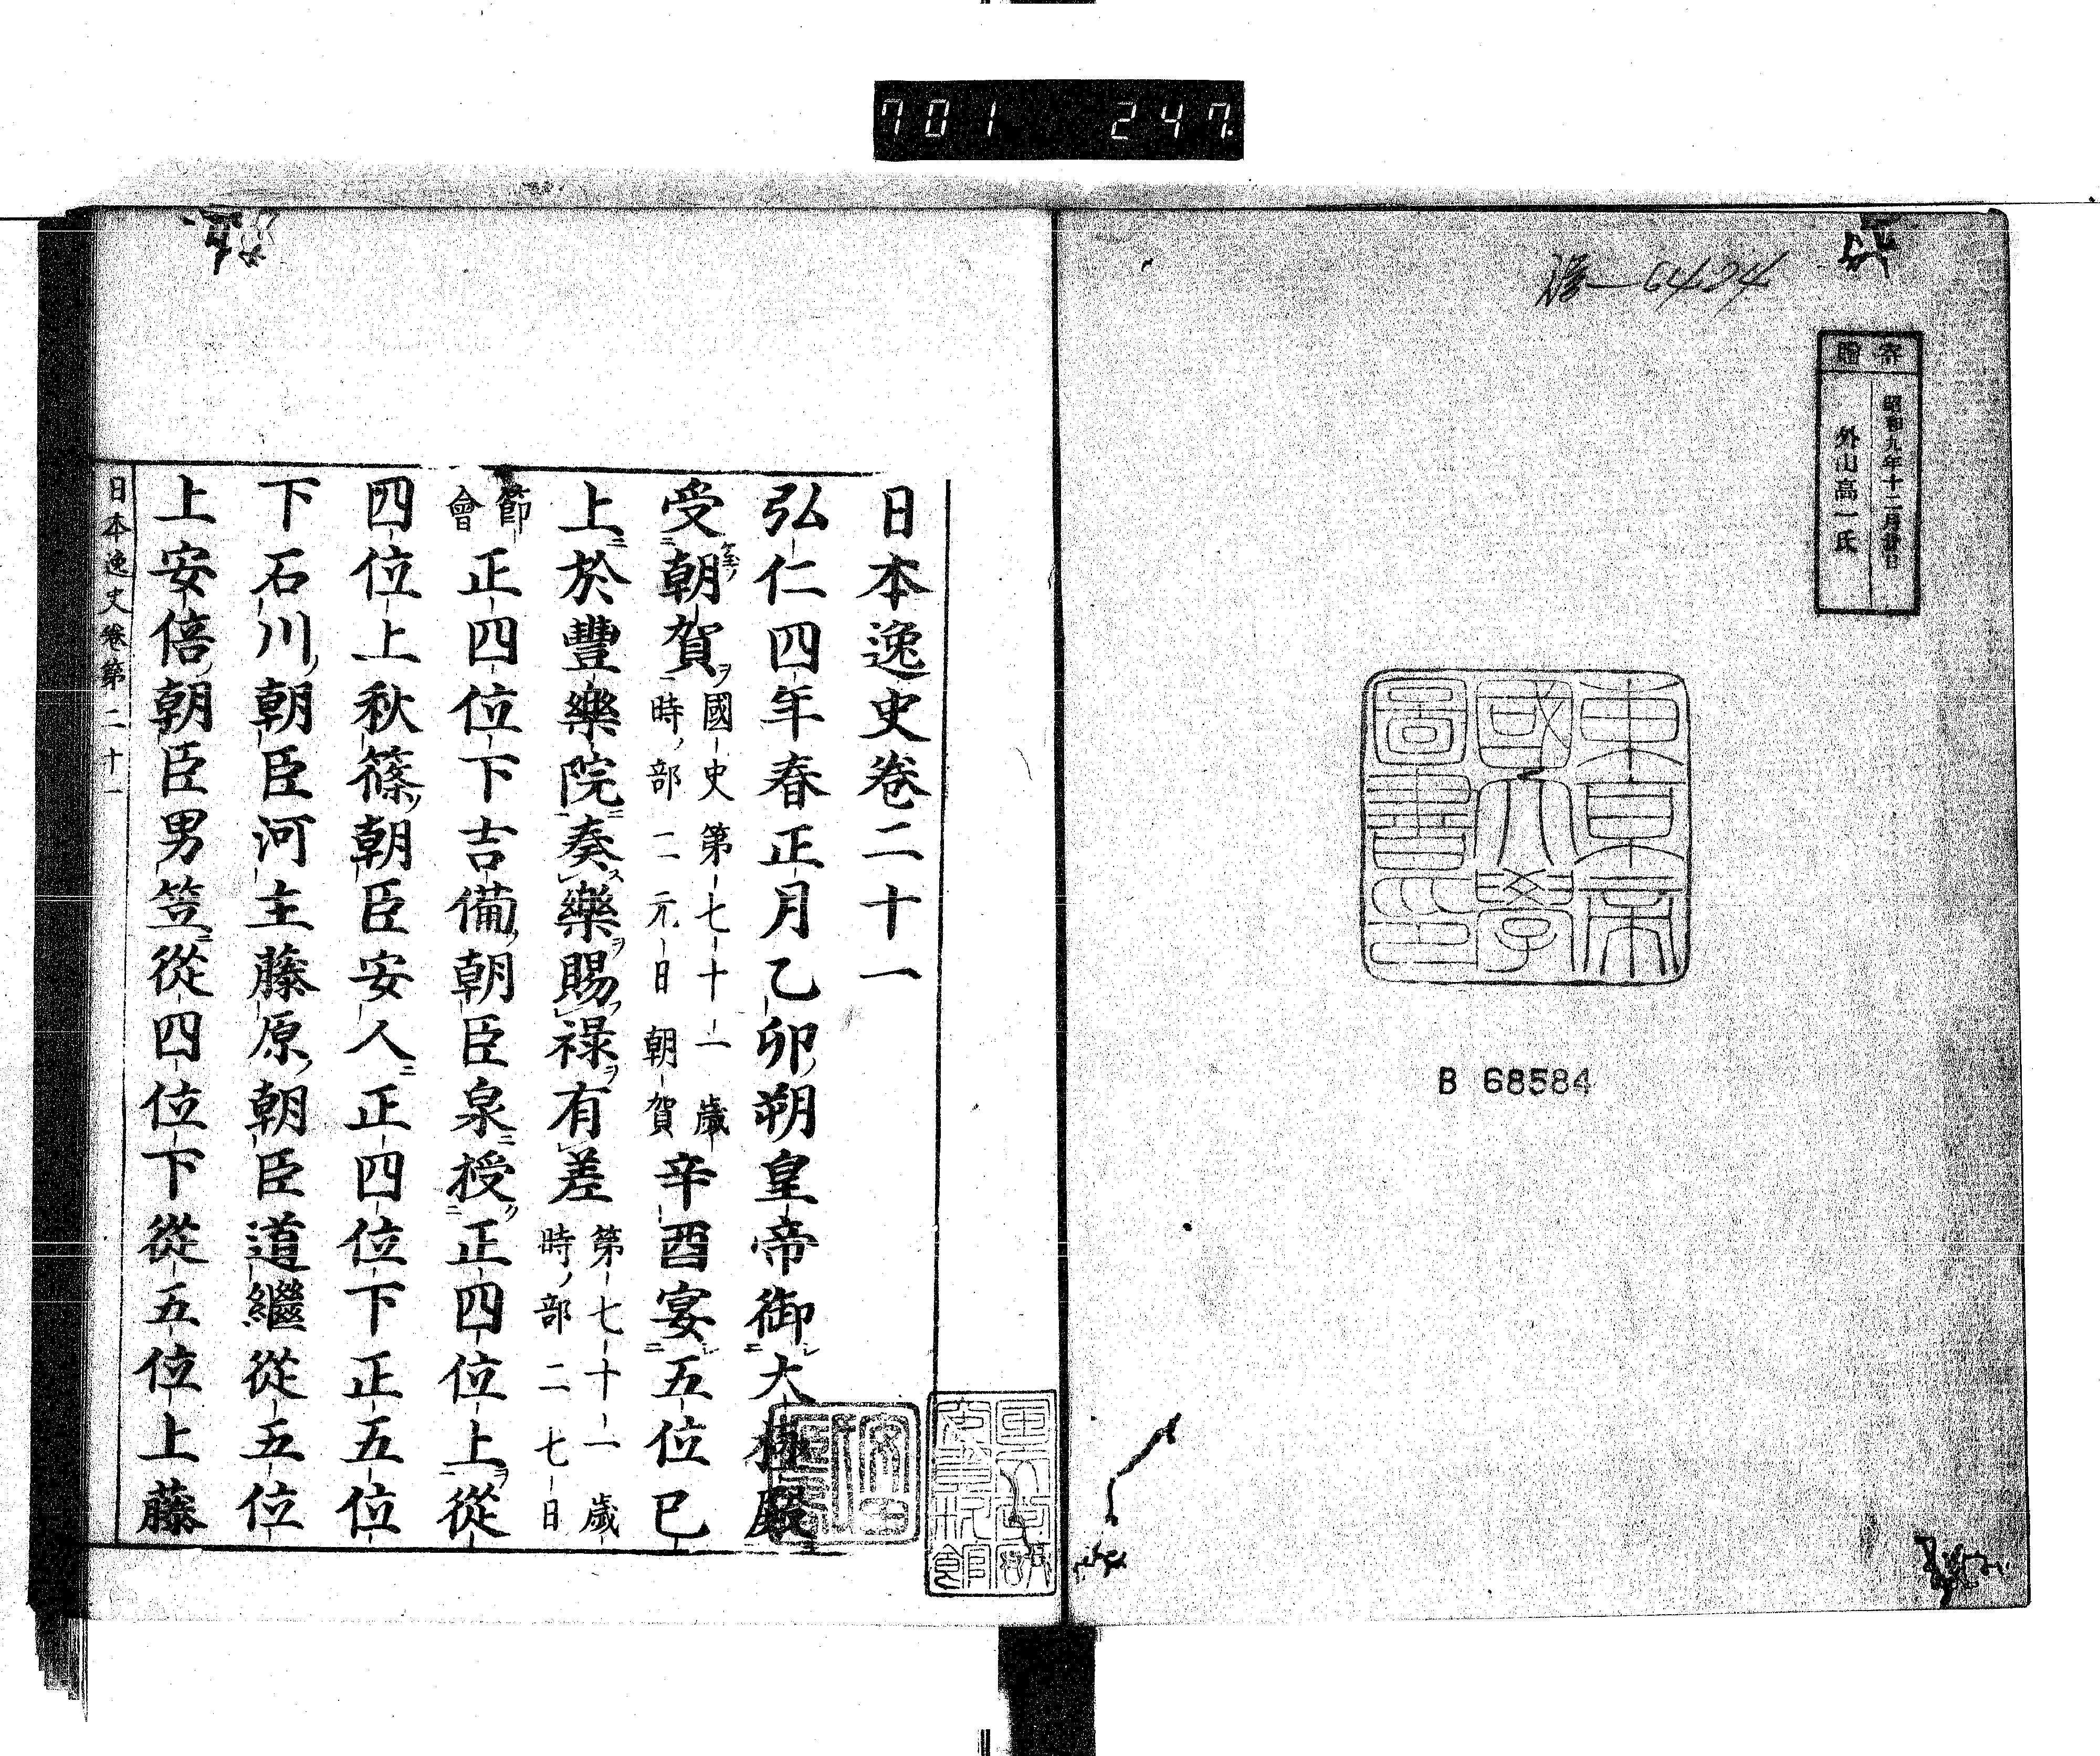 701 247
6424
寄贈
昭和九年十二月
外山高一氏
東京帝
國大學
圖書印
B 68584
日本逸史卷二十一
弘仁四年春正月乙卯朔皇帝御大極殿
受朝賀國史第七十一歲時部二元日朝賀辛酉宴五位已
上於豐樂院奏樂賜祿有差第七十一歲時部二七日
節會正四位下吉備朝臣泉授正四位上從
四位上秋篠朝臣安人正四位下正五位
下石川朝臣河主藤原朝臣道繼從五位
上安倍朝臣男笠從四位下從五位上藤
日本逸史卷第二十一